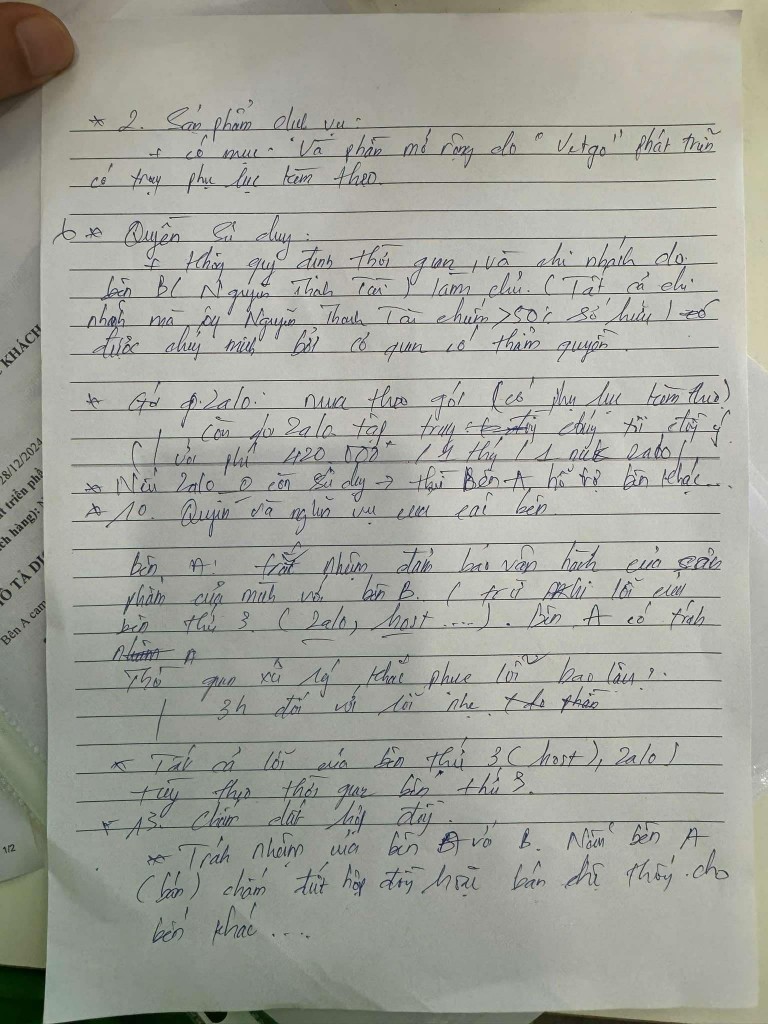 * 2. Sản phẩm dịch vụ:
+ có mục: "Và phần mở rộng do "Vetgo" phát triển
có trụ phụ lục kèm theo.
6 * Quyền sử dụng:
+ Không quy định thời gian, và chi nhánh do
bên B ( Nguyễn Thành Tài ) làm chủ. (Tất cả chi
nhánh mà ông Nguyễn Thanh Tài chiếm >50% sở hữu )
được chứng minh bởi cơ quan có thẩm quyền.
* Gói Zalo: mua theo gói (có phụ lục kèm theo)
( còn gói Zalo tập trung
với phí 420.000đ / 1 tháng / 1 nick Zalo )
* Nếu Zalo 0 còn sử dụng → thì Bên A hỗ trợ bên khác...
* 10. Quyền và nghĩa vụ của các bên
bên A: trách nhiệm đảm bảo vận hành của sản
phẩm của mình với bên B. ( trừ khi lỗi của
bên thứ 3. ( Zalo, host .... ). Bên A có trách
nhiệm
Thời gian xử lý khắc phục lỗi bao lâu?
3h đối với lỗi nhẹ
* Tất cả lỗi của bên thứ 3 ( host ), Zalo )
tùy theo thời gian bên thứ 3.
* 13. Chấm dứt hợp đồng.
* Trách nhiệm của bên A với B. Nếu bên A
(bán) chấm dứt hợp đồng hoặc bán cho
bên khác ....
KHÁCH
28/12/2024
1/2
Bên A cam